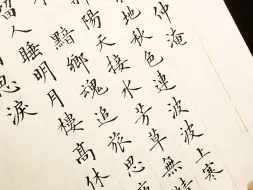 仲淹
地秋色連波波上寒
陽天接水芳草無情
黯鄉魂追旅思
留人睡明月樓高休
思淚